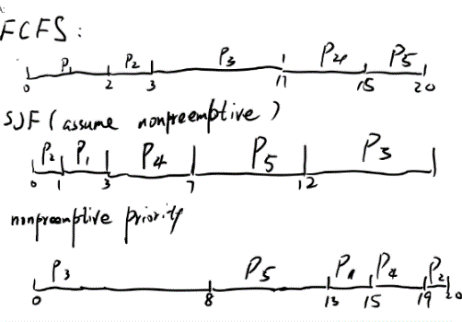 FCFS:
P1 P2 P3 P4 P5
0 2 3 11 15 20
SJF (assume nonpreemptive)
P2 P1 P4 P5 P3
0 1 3 7 12
nonpreemptive priority
P3 P5 P1 P4 P2
0 8 13 15 19 20